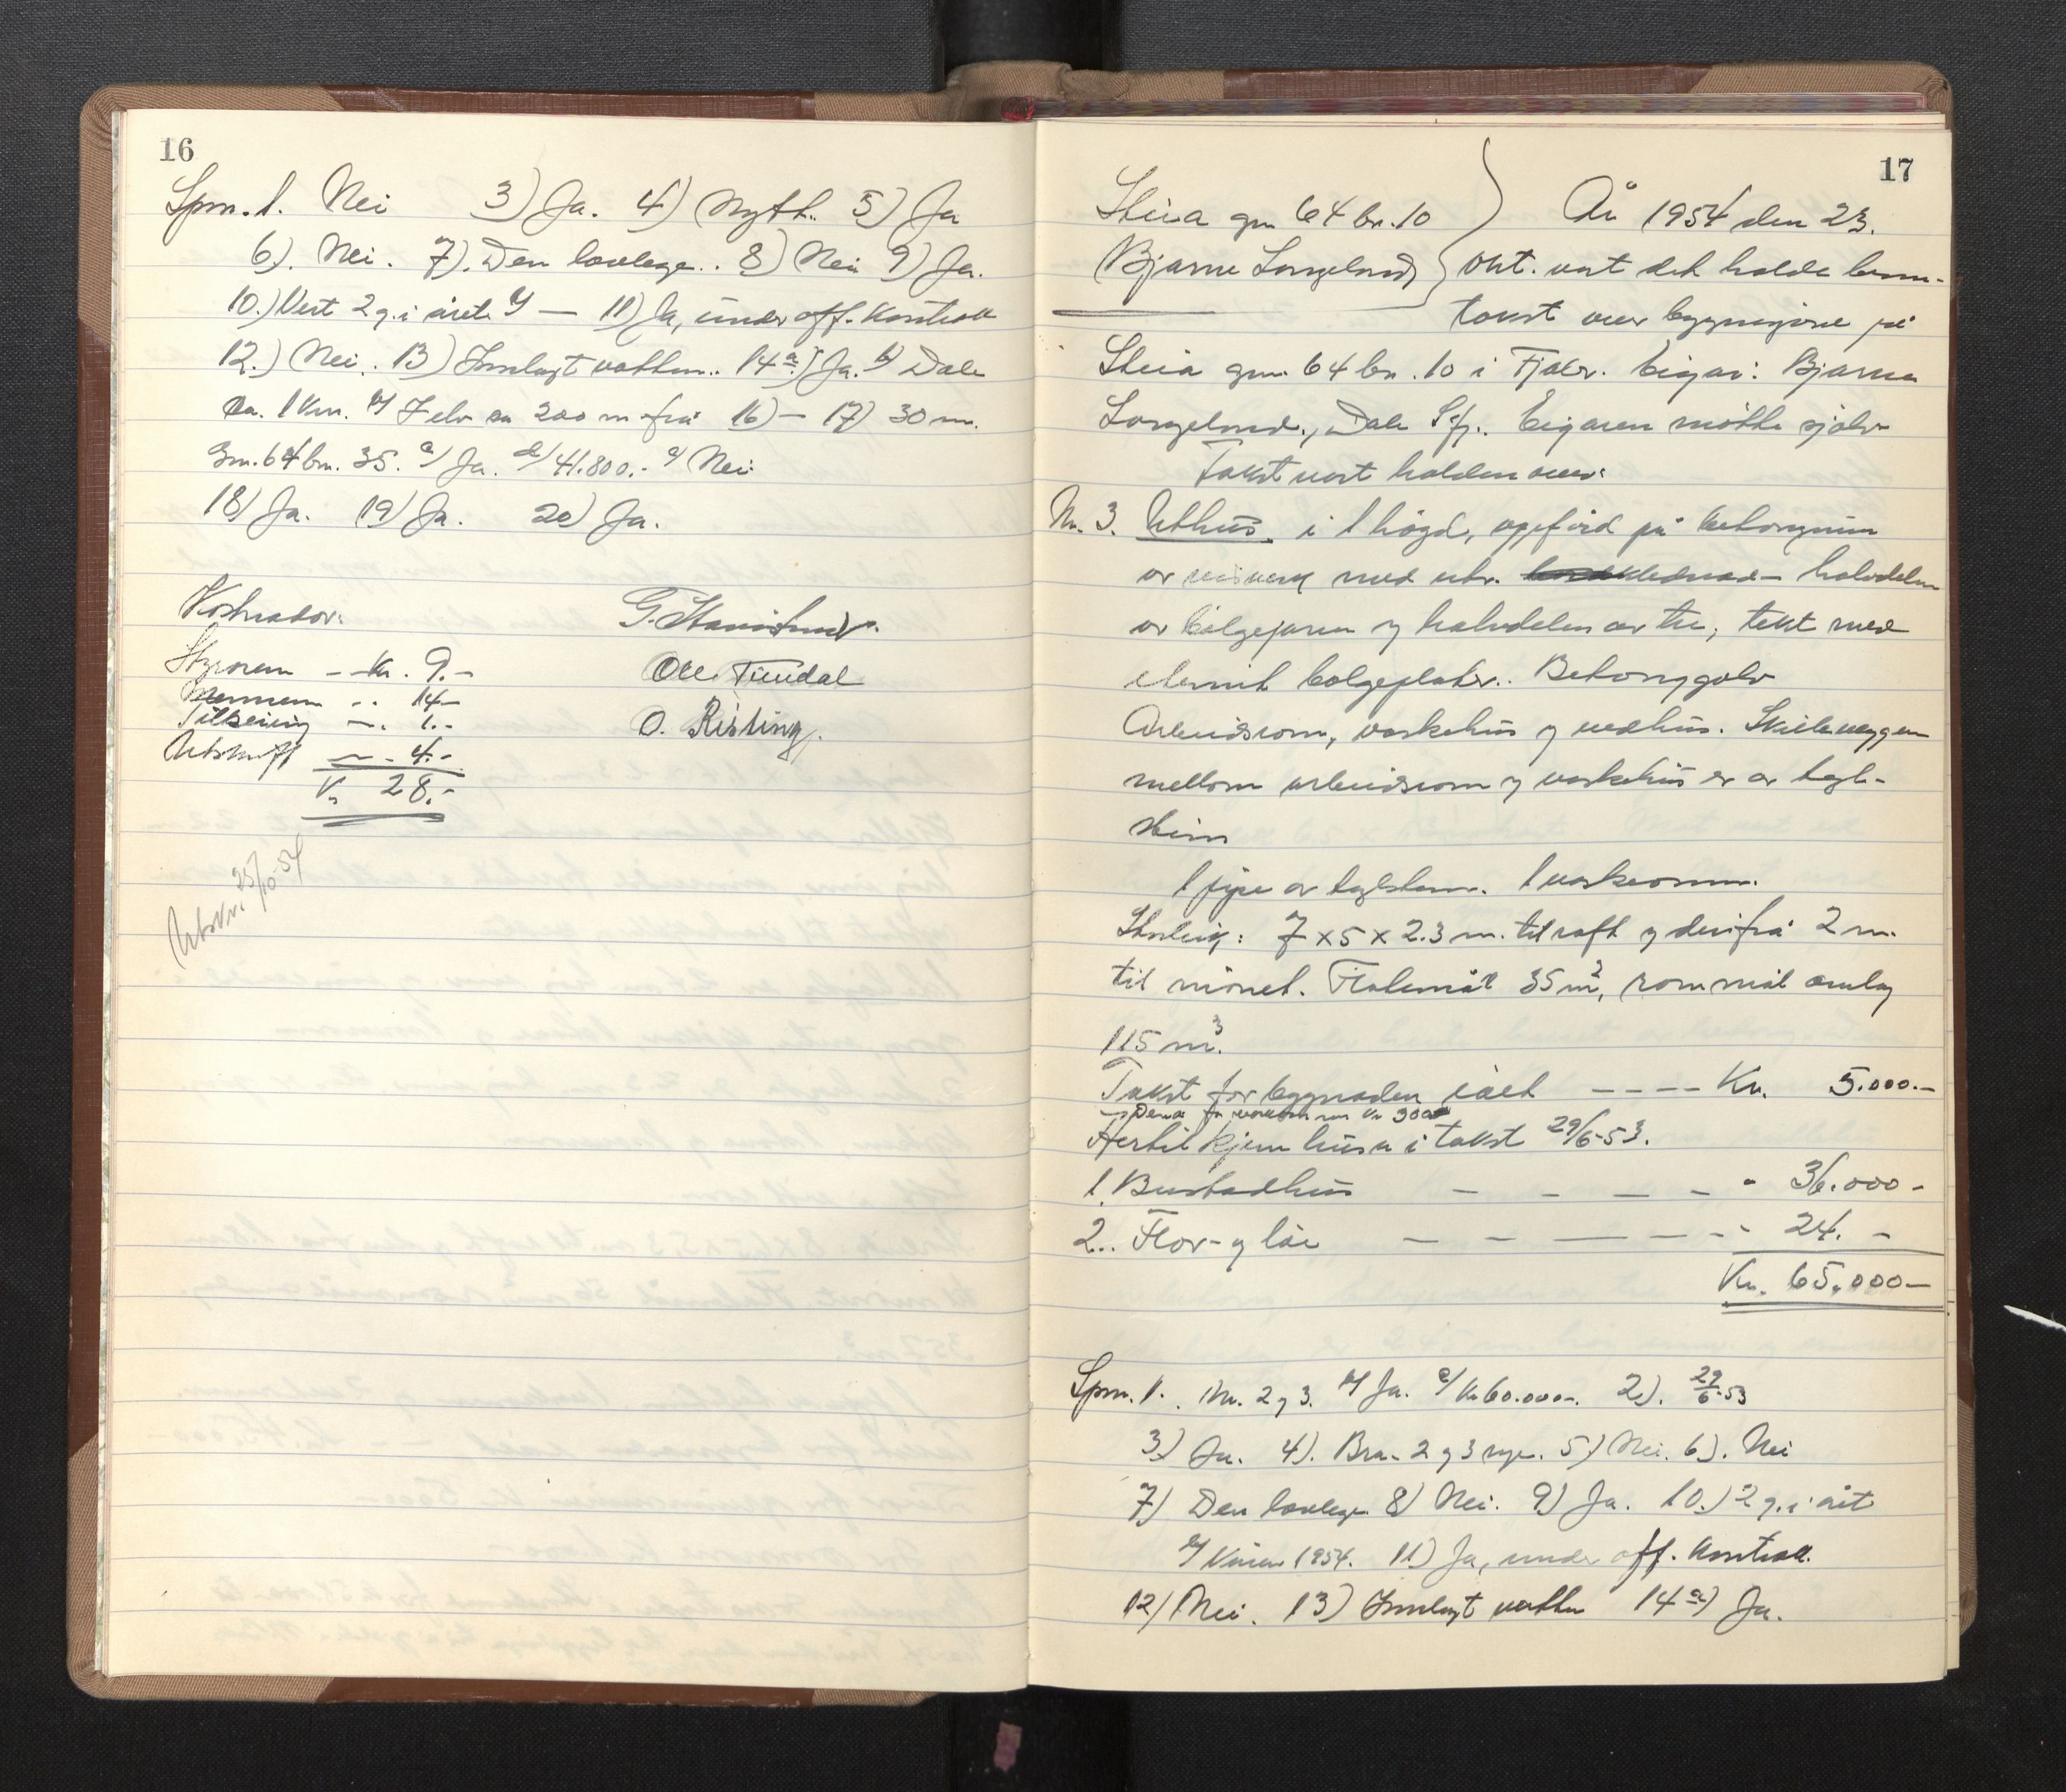 16
Spm. 1. Nei 3) Ja. 4) Nytt. 5) Ja
6). Nei. 7). Den lovlege.. 8) Nei 9) Ja.
10.) Vert 2 g. i året. b) — 11) Ja, under off. kontroll
12.) Nei. 13) Innlagt vatten.. 14 a) Ja. b) Dale
ca. 1 km. c) I elv ca 200 m frå 16) — 17) 30 m.
Gnr. 64 bnr. 35. c/ Ja. d/ 41.800.- e/ Nei
18) Ja. 19) Ja. 20) Ja.
Kostnader:
G.
Styraren - - kr. 9.-
Ole Tundal
Mennene .. 14-
Tilseiing —. 1.-
O. Risting.
Utskrift — - 4.-
Kr 28.-
Utskr. 25/10-54
17
Steia gnr 64 br. 10
År 1954 den 23.
Bjarne Longeland
okt. vart det halde brann-
takst over bygningane på
Steia gnr. 64 bnr. 10 i Fjaler. Eigar: Bjarne
Longeland, Dale Sfj.. Eigaren møtte sjølv
Takst vart halden over:
Nr. 3. Uthus. i 1 høgd, oppførd på betongmur
av reisverk med utv. klednad - halvdelen
av bølgejarn og halvdelen av tre, tekt med
eternit bølgeplater.. Betonggolv
Arbeidsrom, vaskehus og vedhus. Skilleveggen
mellom arbeidsrom og vaskehus er av tegl-
stein
1 pipe av teglstein. 1 vaskeomn.
Storleik: 7 x 5 x 2.3 m. til raft og derifrå 2 m.
til mønet. Flatemål 35 m², rommål omlag
115 m³.
Takst for bygnaden ialt - - - - Kr. 5.000.-
Hertil kjem husa i takst 29/6-53.
1. Bustadhus - - - - " 36.000-
2.. Flor- og løe - - - - - - 24. -
Kr. 65.000-
Spm. 1. . Nr. 2 og 3. b/ Ja. c/ Kr 60.000-. 2). 29/6-53
3) Ja. 4). Bra- 2 og 3 nye. 5) Nei. 6). Nei
7) Den lovlege 8) Nei. 9) Ja. 10.) 2 g. i året
b/ Våren 1954. 11) Ja, under off. kontroll.
12) Nei. 13) Innlagt vatten 14 a) Ja.